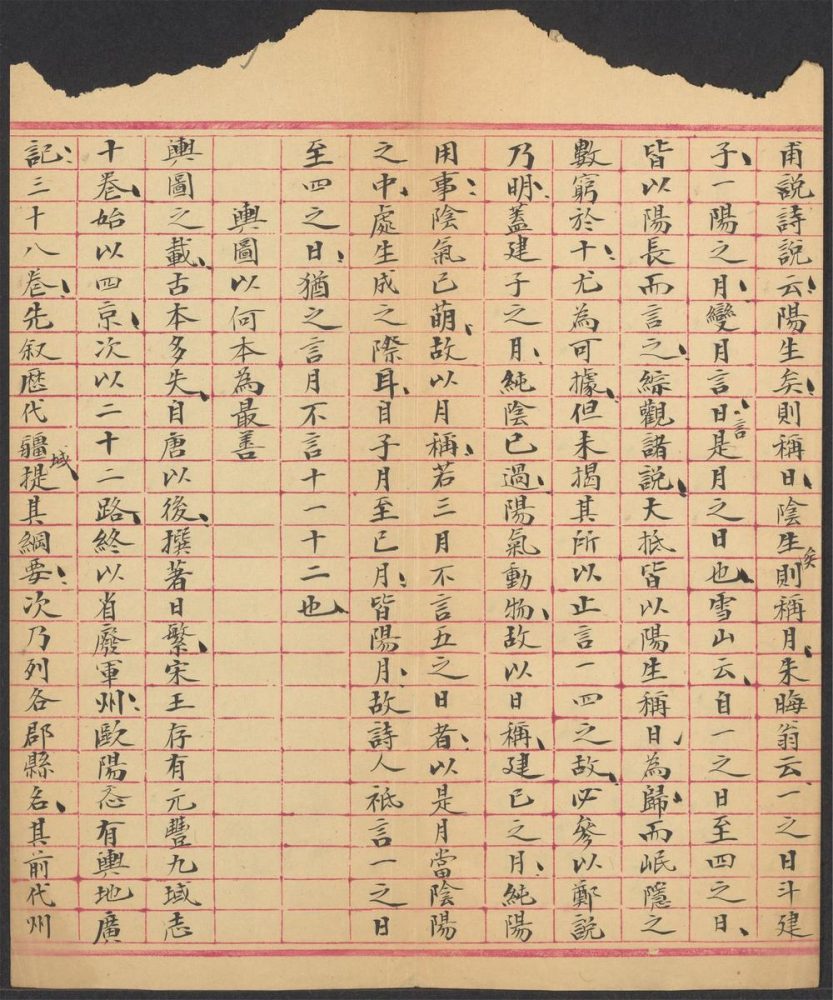 甫說詩說云、陽生矣、則稱日、陰生矣則稱月、朱晦翁云、一之日斗建
子、一陽之月、變月言日、言是月之日也、雪山云、自一之日至四之日、
皆以陽長而言之、綜觀諸說、大抵皆以陽生稱日、為歸、而岷隱之
數窮於十、尤為可據、但未揭其所以止言一四之故、必參以鄭說
乃明、蓋建子之月、純陰已過、陽氣動物、故以日稱、建巳之月、純陽
用事、陰氣已萌、故以月稱、若三月不言五之日者、以是月當陰陽
之中、處生成之際耳、自子月至巳月、皆陽月、故詩人祗言一之日
至四之日、猶之言月不言十一十二也、
輿圖以何本為最善
輿圖之載、古本多失、自唐以後、撰著日繁、宋王存有元豐九域志
十卷、始以四京、次以二十二路、終以省廢軍州、歐陽忞有輿地廣
記、三十八卷、先叙歷代疆域、提其綱要、次乃列各郡縣名、其前代州